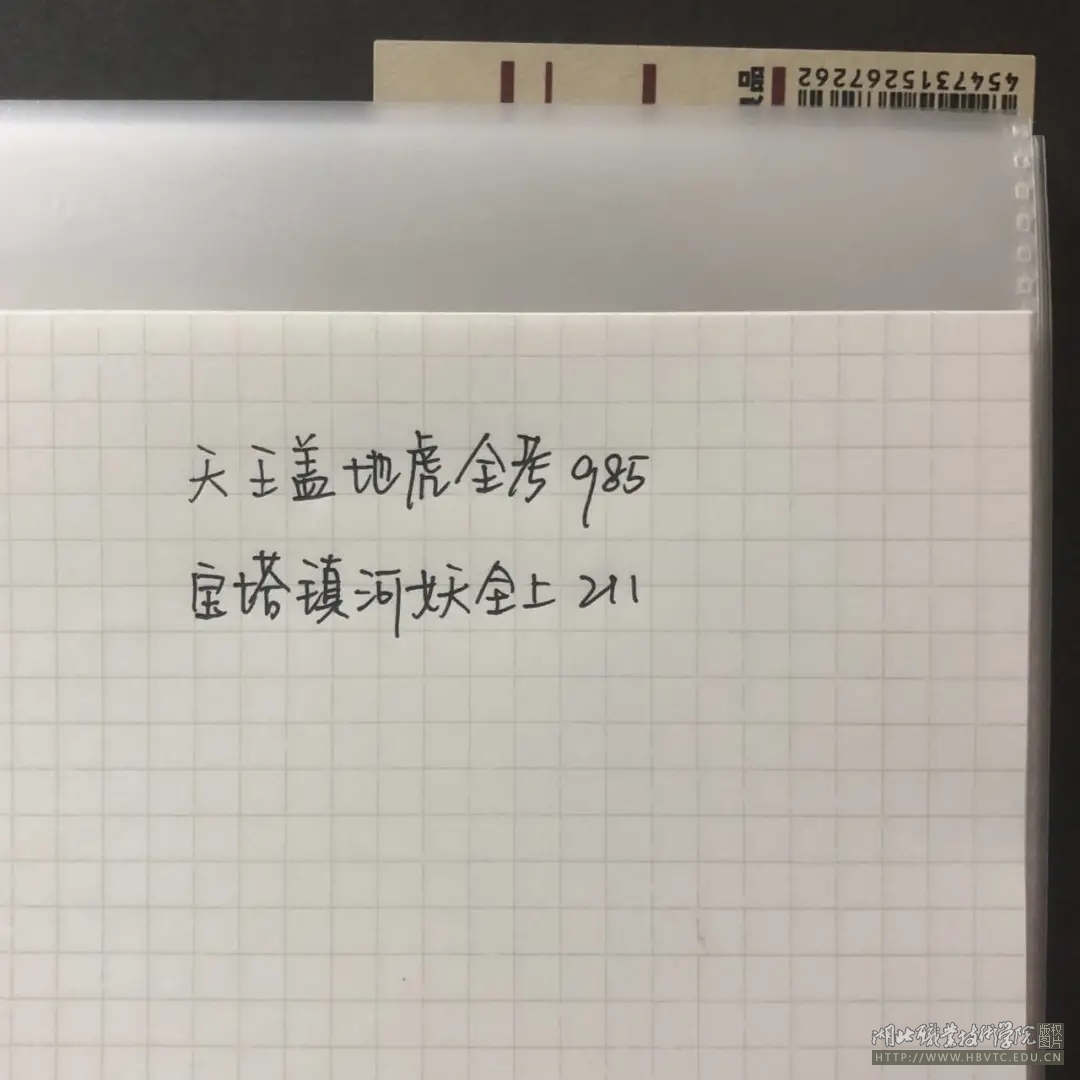 4547315267262
天王盖地虎全考985
宝塔镇河妖全上211
湖北职业技术学院 版权图片
HTTP://WWW.HBVTC.EDU.CN